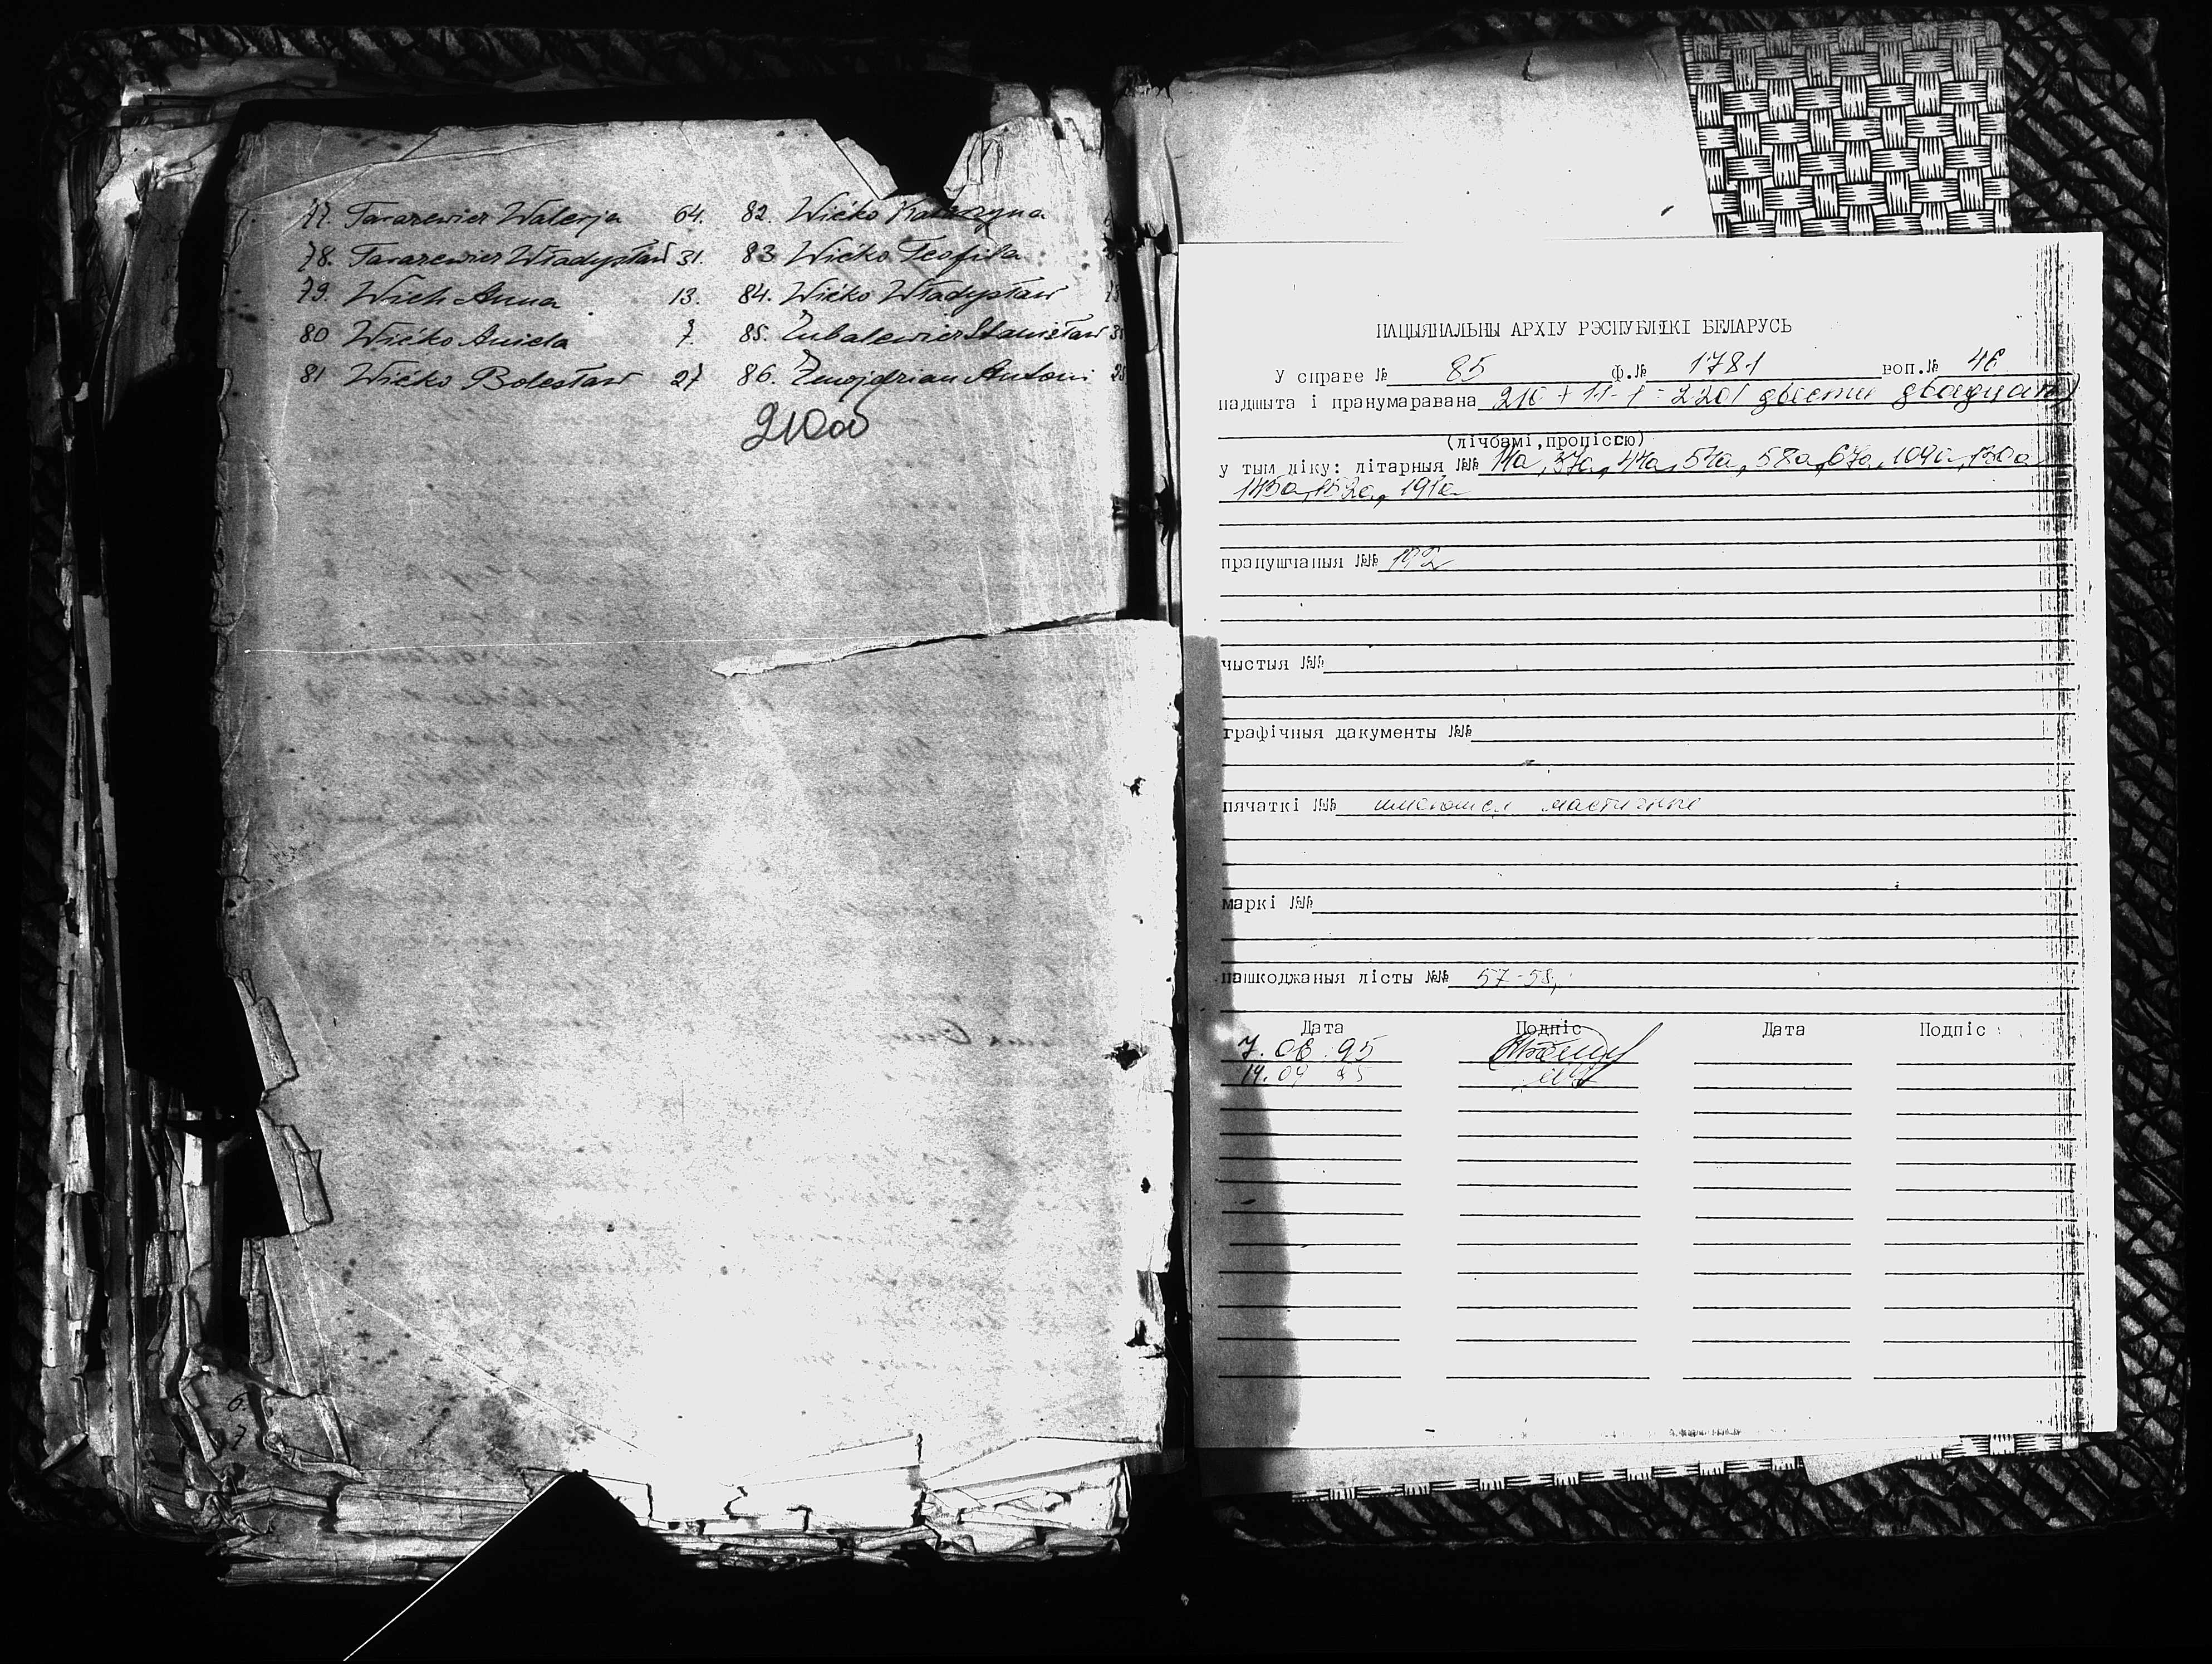 77. Tararewicz Walerja 64.
78. Tararewicz Władysław 31.
79. Wich Anna 13.
80 Wićko Aniela 7
81 Wićko Bolesław 27
82. Wićko Katarzyna
83. Wićko Teofila
84. Wićko Władysław
85. Zubalewicz Stanisław
86. Żmojdzian Antoni
210об
НАЦЫЯНАЛЬНЫ АРХІЎ РЭСПУБЛІКІ БЕЛАРУСЬ
У справе № 85 ф.№ 1781 воп.№
падшыта і пранумаравана 210 + 11 - 1 = 220 ( двести двадцать )
(лічбамі, пропіссю)
у тым ліку: літарныя №№ 14а, 37а, 44а, 54а, 58а, 67а, 109а, 130а
145а, 152а, 191а
прапушчаныя №№ 192
чыстыя №№
графічныя дакументы №№
пячаткі №№ имеются мастичные
маркі №№
пашкоджаныя лісты №№ 57-58,
Дата Подпіс Дата Подпіс
7.06.95
14.09 95